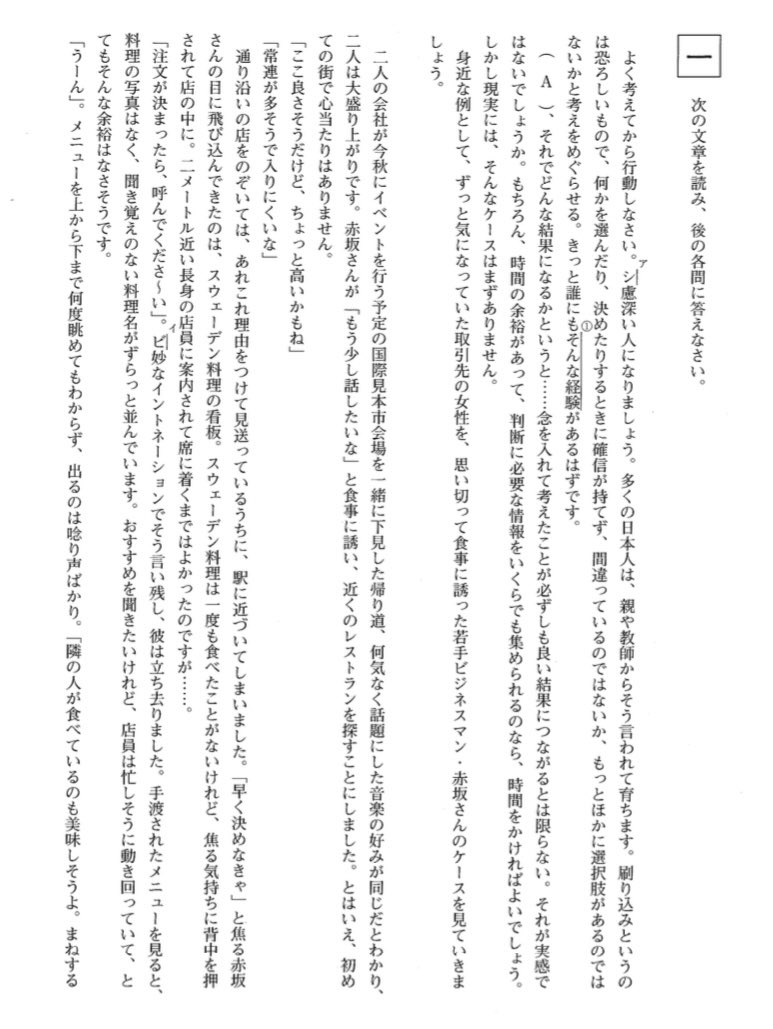 一
次の文章を読み、後の各問に答えなさい。
よく考えてから行動しなさい。シ慮深い人になりましょう。多くの日本人は、親や教師からそう言われて育ちます。刷り込みというの
ア
は恐ろしいもので、何かを選んだり、決めたりするときに確信が持てず、間違っているのではないか、もっとほかに選択肢があるのでは
ないかと考えをめぐらせる。きっと誰にもそんな経験があるはずです。
①
（　Ａ　）、それでどんな結果になるかというと……念を入れて考えたことが必ずしも良い結果につながるとは限らない。それが実感で
はないでしょうか。もちろん、時間の余裕があって、判断に必要な情報をいくらでも集められるのなら、時間をかければよいでしょう。
しかし現実には、そんなケースはまずありません。
身近な例として、ずっと気になっていた取引先の女性を、思い切って食事に誘った若手ビジネスマン・赤坂さんのケースを見ていきま
しょう。
二人の会社が今秋にイベントを行う予定の国際見本市会場を一緒に下見した帰り道、何気なく話題にした音楽の好みが同じだとわかり、
二人は大盛り上がりです。赤坂さんが「もう少し話したいな」と食事に誘い、近くのレストランを探すことにしました。とはいえ、初め
ての街で心当たりはありません。
「ここ良さそうだけど、ちょっと高いかもね」
「常連が多そうで入りにくいな」
通り沿いの店をのぞいては、あれこれ理由をつけて見送っているうちに、駅に近づいてしまいました。「早く決めなきゃ」と焦る赤坂
さんの目に飛び込んできたのは、スウェーデン料理の看板。スウェーデン料理は一度も食べたことがないけれど、焦る気持ちに背中を押
されて店の中に。二メートル近い長身の店員に案内されて席に着くまではよかったのですが……。
「注文が決まったら、呼んでくださ～い」。ビ妙なイントネーションでそう言い残し、彼は立ち去りました。手渡されたメニューを見ると、
イ
料理の写真はなく、聞き覚えのない料理名がずらっと並んでいます。おすすめを聞きたいけれど、店員は忙しそうに動き回っていて、と
てもそんな余裕はなさそうです。
「うーん」。メニューを上から下まで何度眺めてもわからず、出るのは唸り声ばかり。「隣の人が食べているのも美味しそうよ。まねする